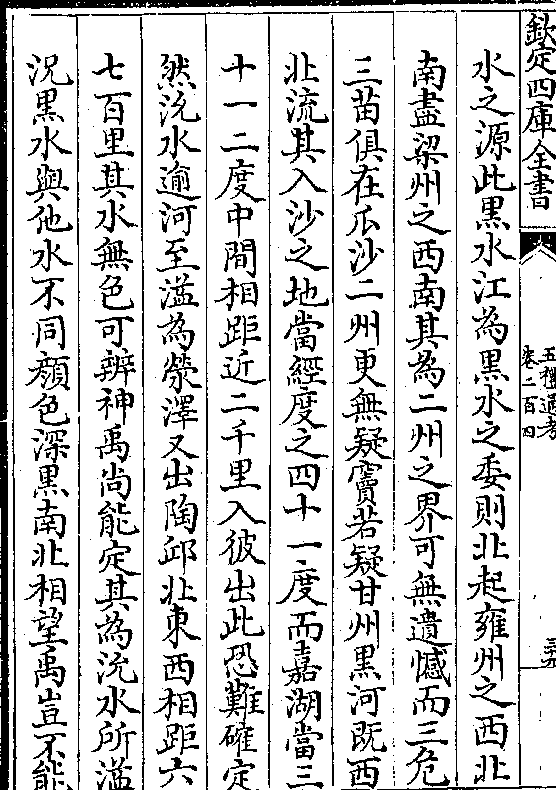 欽定四庫全書
五禮通考
卷二百四
三十五
水之源此黒水江為黒水之委則北起雍州之西北
南盡梁州之西南其為二州之界可無遺憾而三危
三苗俱在瓜沙二州更無疑竇若疑甘州黒河既西
北流其入沙之地當經度之四十一度而嘉湖當三
十一二度中間相距近二千里入彼出此恐難確定
然沇水逾河至溢為滎澤又出陶邱北東西相距六
七百里其水無色可辨神禹尚能定其為沇水所溢
況黒水與他水不同顔色深黒南北相望禹豈不能